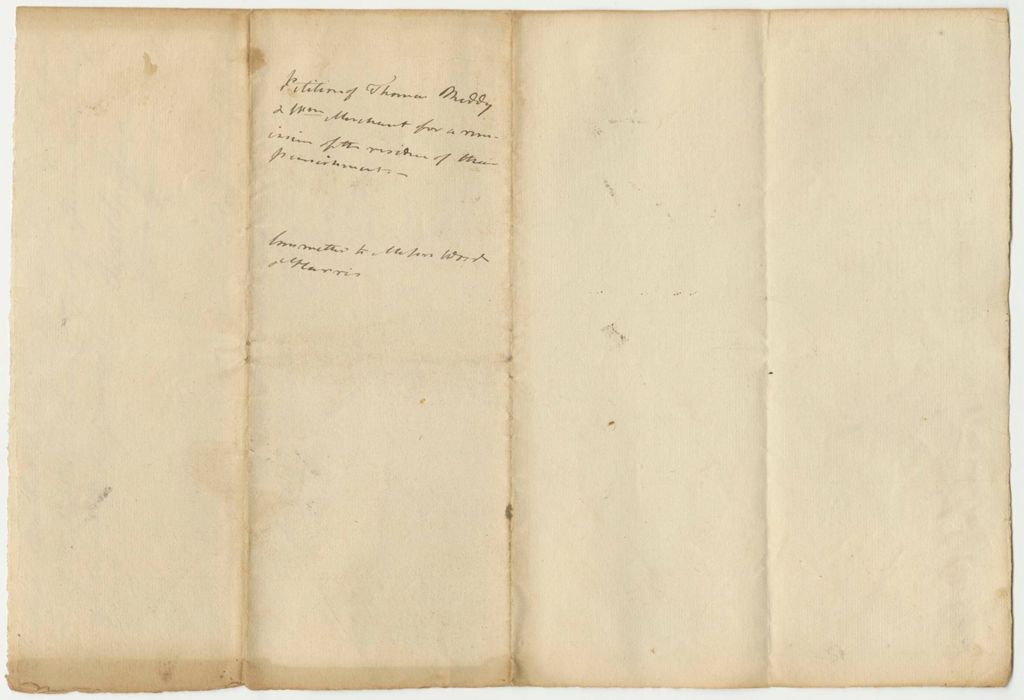 Petition of Thomas Middy
& Wm Merchant for a rem-
ission of the residue of their
Punishment –
Committed to Messrs Ward
& Harris